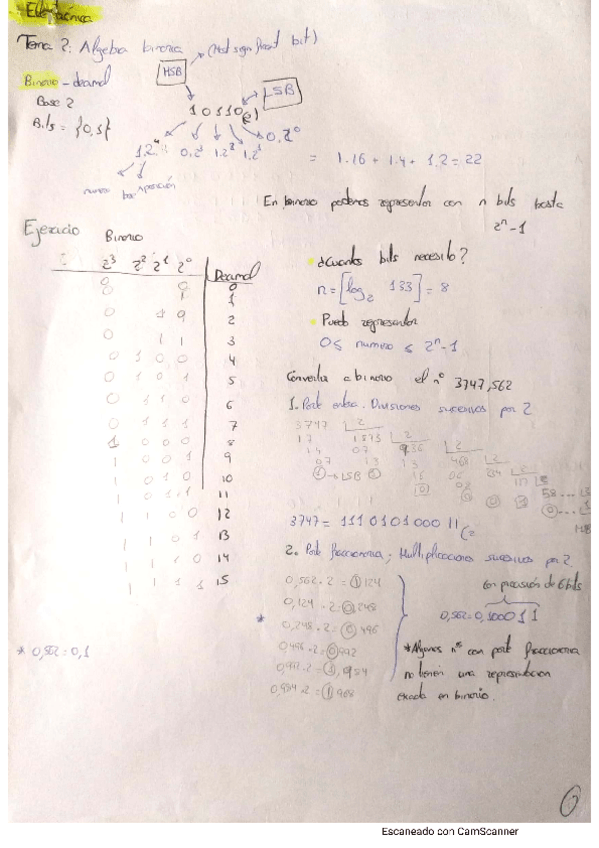 Electrónica
Tema 2: Algebra binaria (Most significant bit)
MSB
LSB
Binario - decimal
Base 2
Bits = {0,1}
10110(2)
1.2⁴ 0.2³ 1.2² 1.2¹ 0.2⁰
= 1.16 + 1.4 + 1.2 = 22
numero base posición
En binario podemos representar con n bits hasta
2ⁿ-1
Ejercicio Binario
2³ 2² 2¹ 2⁰ Decimal
0 0 0
1 1
1 0 2
0 1 1 3
0 1 0 0 4
0 1 0 1 5
0 1 1 0 6
0 1 1 1 7
1 0 0 0 8
1 0 0 1 9
1 0 1 0 10
1 0 1 1 11
1 1 0 0 12
1 1 0 1 13
1 1 1 0 14
1 1 1 1 15
¿Cuantos bits necesito?
n = [log₂ 133] = 8
Puedo representar
0 ≤ numero ≤ 2ⁿ-1
Convertir a binario el nº 3747,562
1. Parte entera. Divisiones sucesivas por 2
3747 2
17 1873 2
14 07 936 2
07 13 13 468 2
1 → LSB
3747 = 111010100011(2
2. Parte fraccionaria; Multiplicaciones sucesivas por 2.
0,562 . 2 = 1,124
0,124 . 2 = 0,248
0,248 . 2 = 0,496
0,496 . 2 = 0,992
0,992 . 2 = 1,984
0,984 . 2 = 1,968
con precisión de 6 bits
0,562 = 0,100011
* Algunos nºs con parte fraccionaria
no tienen una representación
exacta en binario.
* 0,562 = 0,1
Escaneado con CamScanner